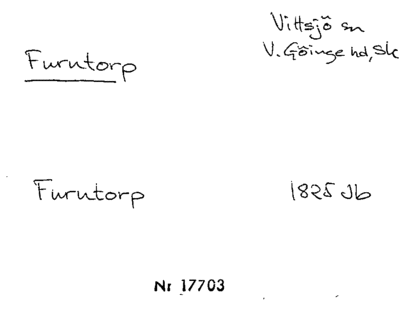 Vittsjö sn
V. Göinge hd, Sk
Furutorp
Furutorp
1825 Jb
Nr 17703